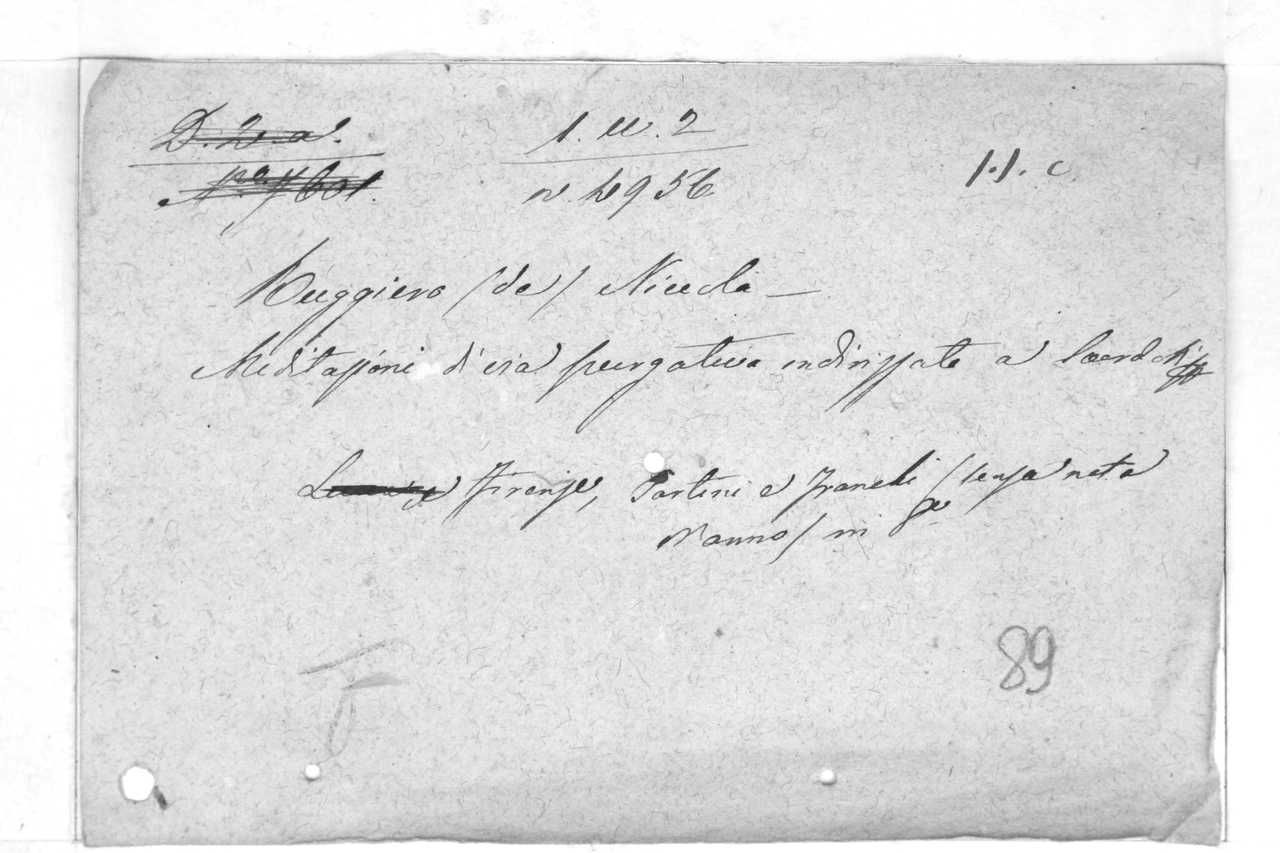 D. 2. a. 1. u. 2
n. 4956 1.1. c.
Ruggiero (de) Nicola —
Meditazioni di via purgativa indirizzate a
Firenze, Tartini e Franchi (senza nota
d'anno) in 8º
89